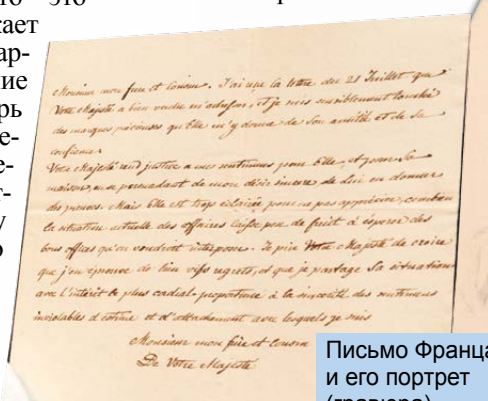 это
кает
ар-
ние
рь
е-
е-
т-
у
о
Monsieur mon frere et Cousin. J'ai reçu la lettre du 21 Juillet que
Votre Majesté a bien voulu m'adresser, et je suis sensiblement touché
des marques précieuses qu'Elle m'y donne de Son amitié et de Sa
confiance.
Votre Majesté rend justice a mes sentimens pour Elle, et pour Sa
maison, en se persuadant de mon désir sincere de Lui en donner
des preuves. Mais Elle est trop éclairée pour ne pas apprécier, combien
la situation actuelle des affaires laisse peu de fruit à esperer des
bons offices qu'on voudroit interposer. Je prie Votre Majesté de croire
que j'en éprouve de bien vifs regrets, et que je partage Sa situation
avec l'intérêt le plus cordial proportionné à la sincerité des sentimens
inviolables d'estime et d'attachement avec lesquels je suis
Monsieur mon frère et Cousin
De Votre Majesté
Письмо Франца
и его портрет
(гравюра)